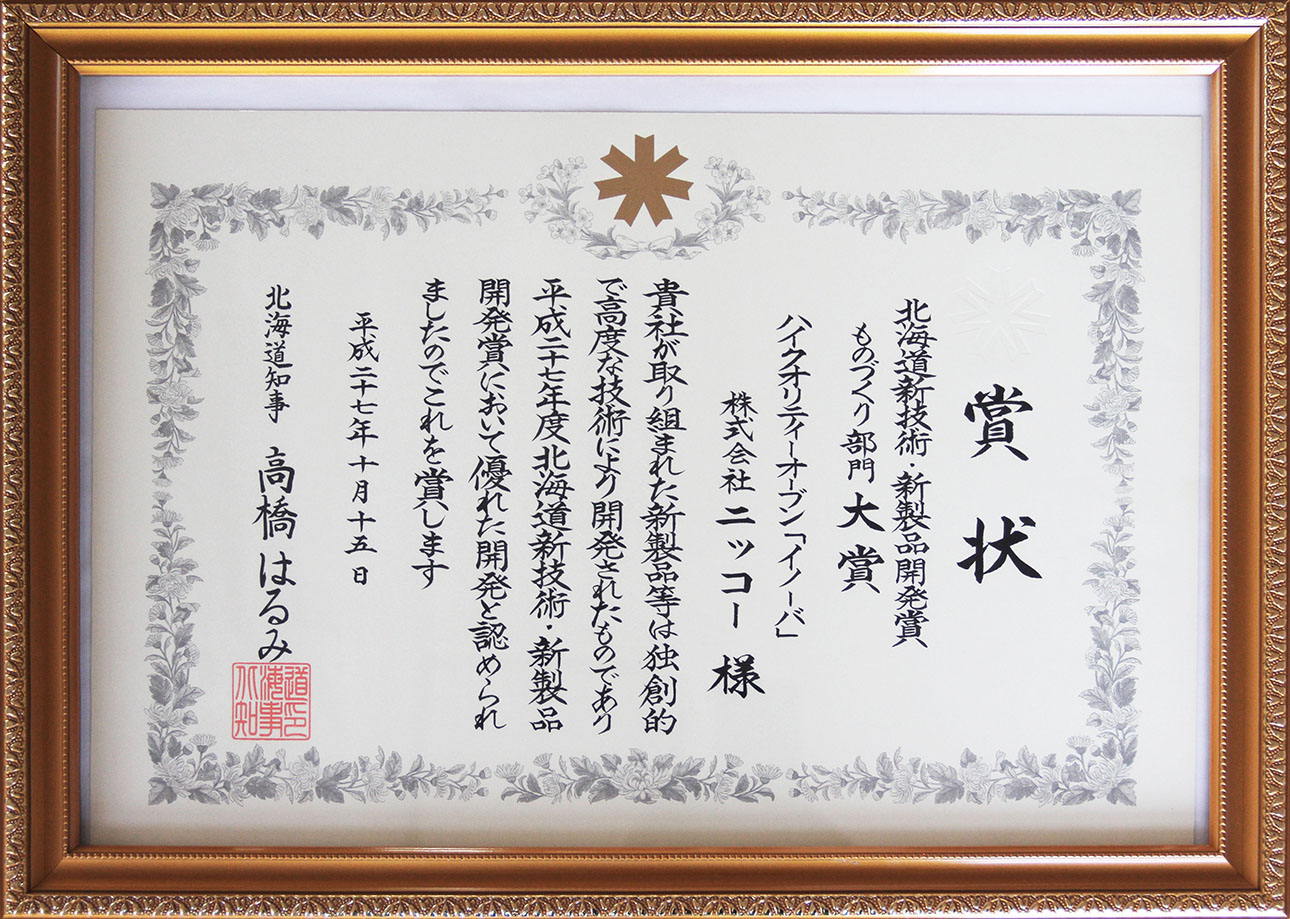 賞状
北海道新技術・新製品開発賞
ものづくり部門 大賞
ハイクオリティーオーブン「イノーバ」
株式会社 ニッコー 様
貴社が取り組まれた新製品等は独創的
で高度な技術により開発されたものであり
平成二十七年度北海道新技術・新製品
開発賞において優れた開発と認められ
ましたのでこれを賞します
平成二十七年十月十五日
北海道知事 高橋はるみ
北海道知事印